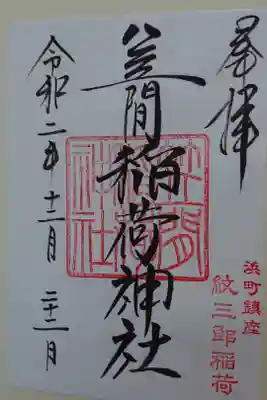 奉拝
浜町鎮座
紋三郎稲荷
笠間稲荷神社
笠間稲荷神社
令和二年十二月二十二日